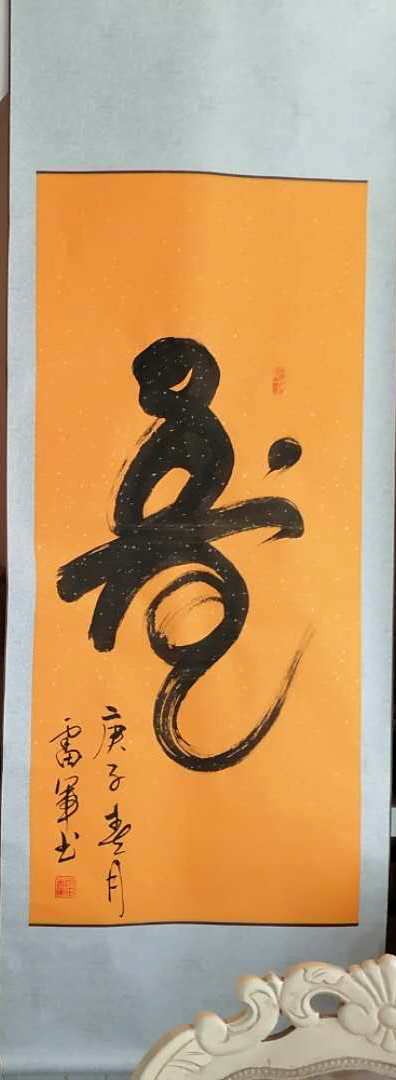 龙
庚子春月
雷軍书